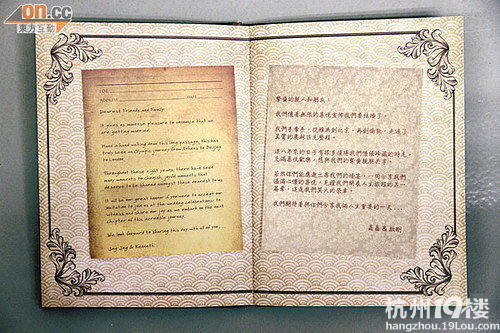 on.cc
東方互動
FOR
ADDRESS DATE
Dearest Friends and Family
It gives us immense pleasure to announce that we
are getting married.
Hand in hand walking down this long passage, this has
truly been an Olympic journey from Athens to Beijing
to London.
Throughout these eight years, there have been
many moments to cherish, joyful moments that
deserve to be shared amongst those dearest to us.
It will be our great honour if you were to accept our
invitation to join us at the wedding celebrations to
witness and share our joy as we embark on the next
chapter of this incredible journey.
We look forward to sharing this day with all of you.
Jay Jay & Kenneth
摯愛的親人和朋友,
我們懷著無限的喜悅宣佈我們要結婚了。
我們手牽手,從雅典到北京,再到倫敦,走過了
真實的奧林匹克歷程。
這八年來的日子有很多值得我們懷緬珍藏的時光,
充滿喜悅歡樂,想與我們的摯愛親朋共享。
若然你們能應邀出席我們的婚宴,一同分享我們
滿滿心懷的喜悅,見證我們開展人生旅程的另一
篇章,這是我們莫大的榮幸。
我們期待著與你們分享我倆人生重要的一天。
杭州19楼
hangzhou.19Lou.com